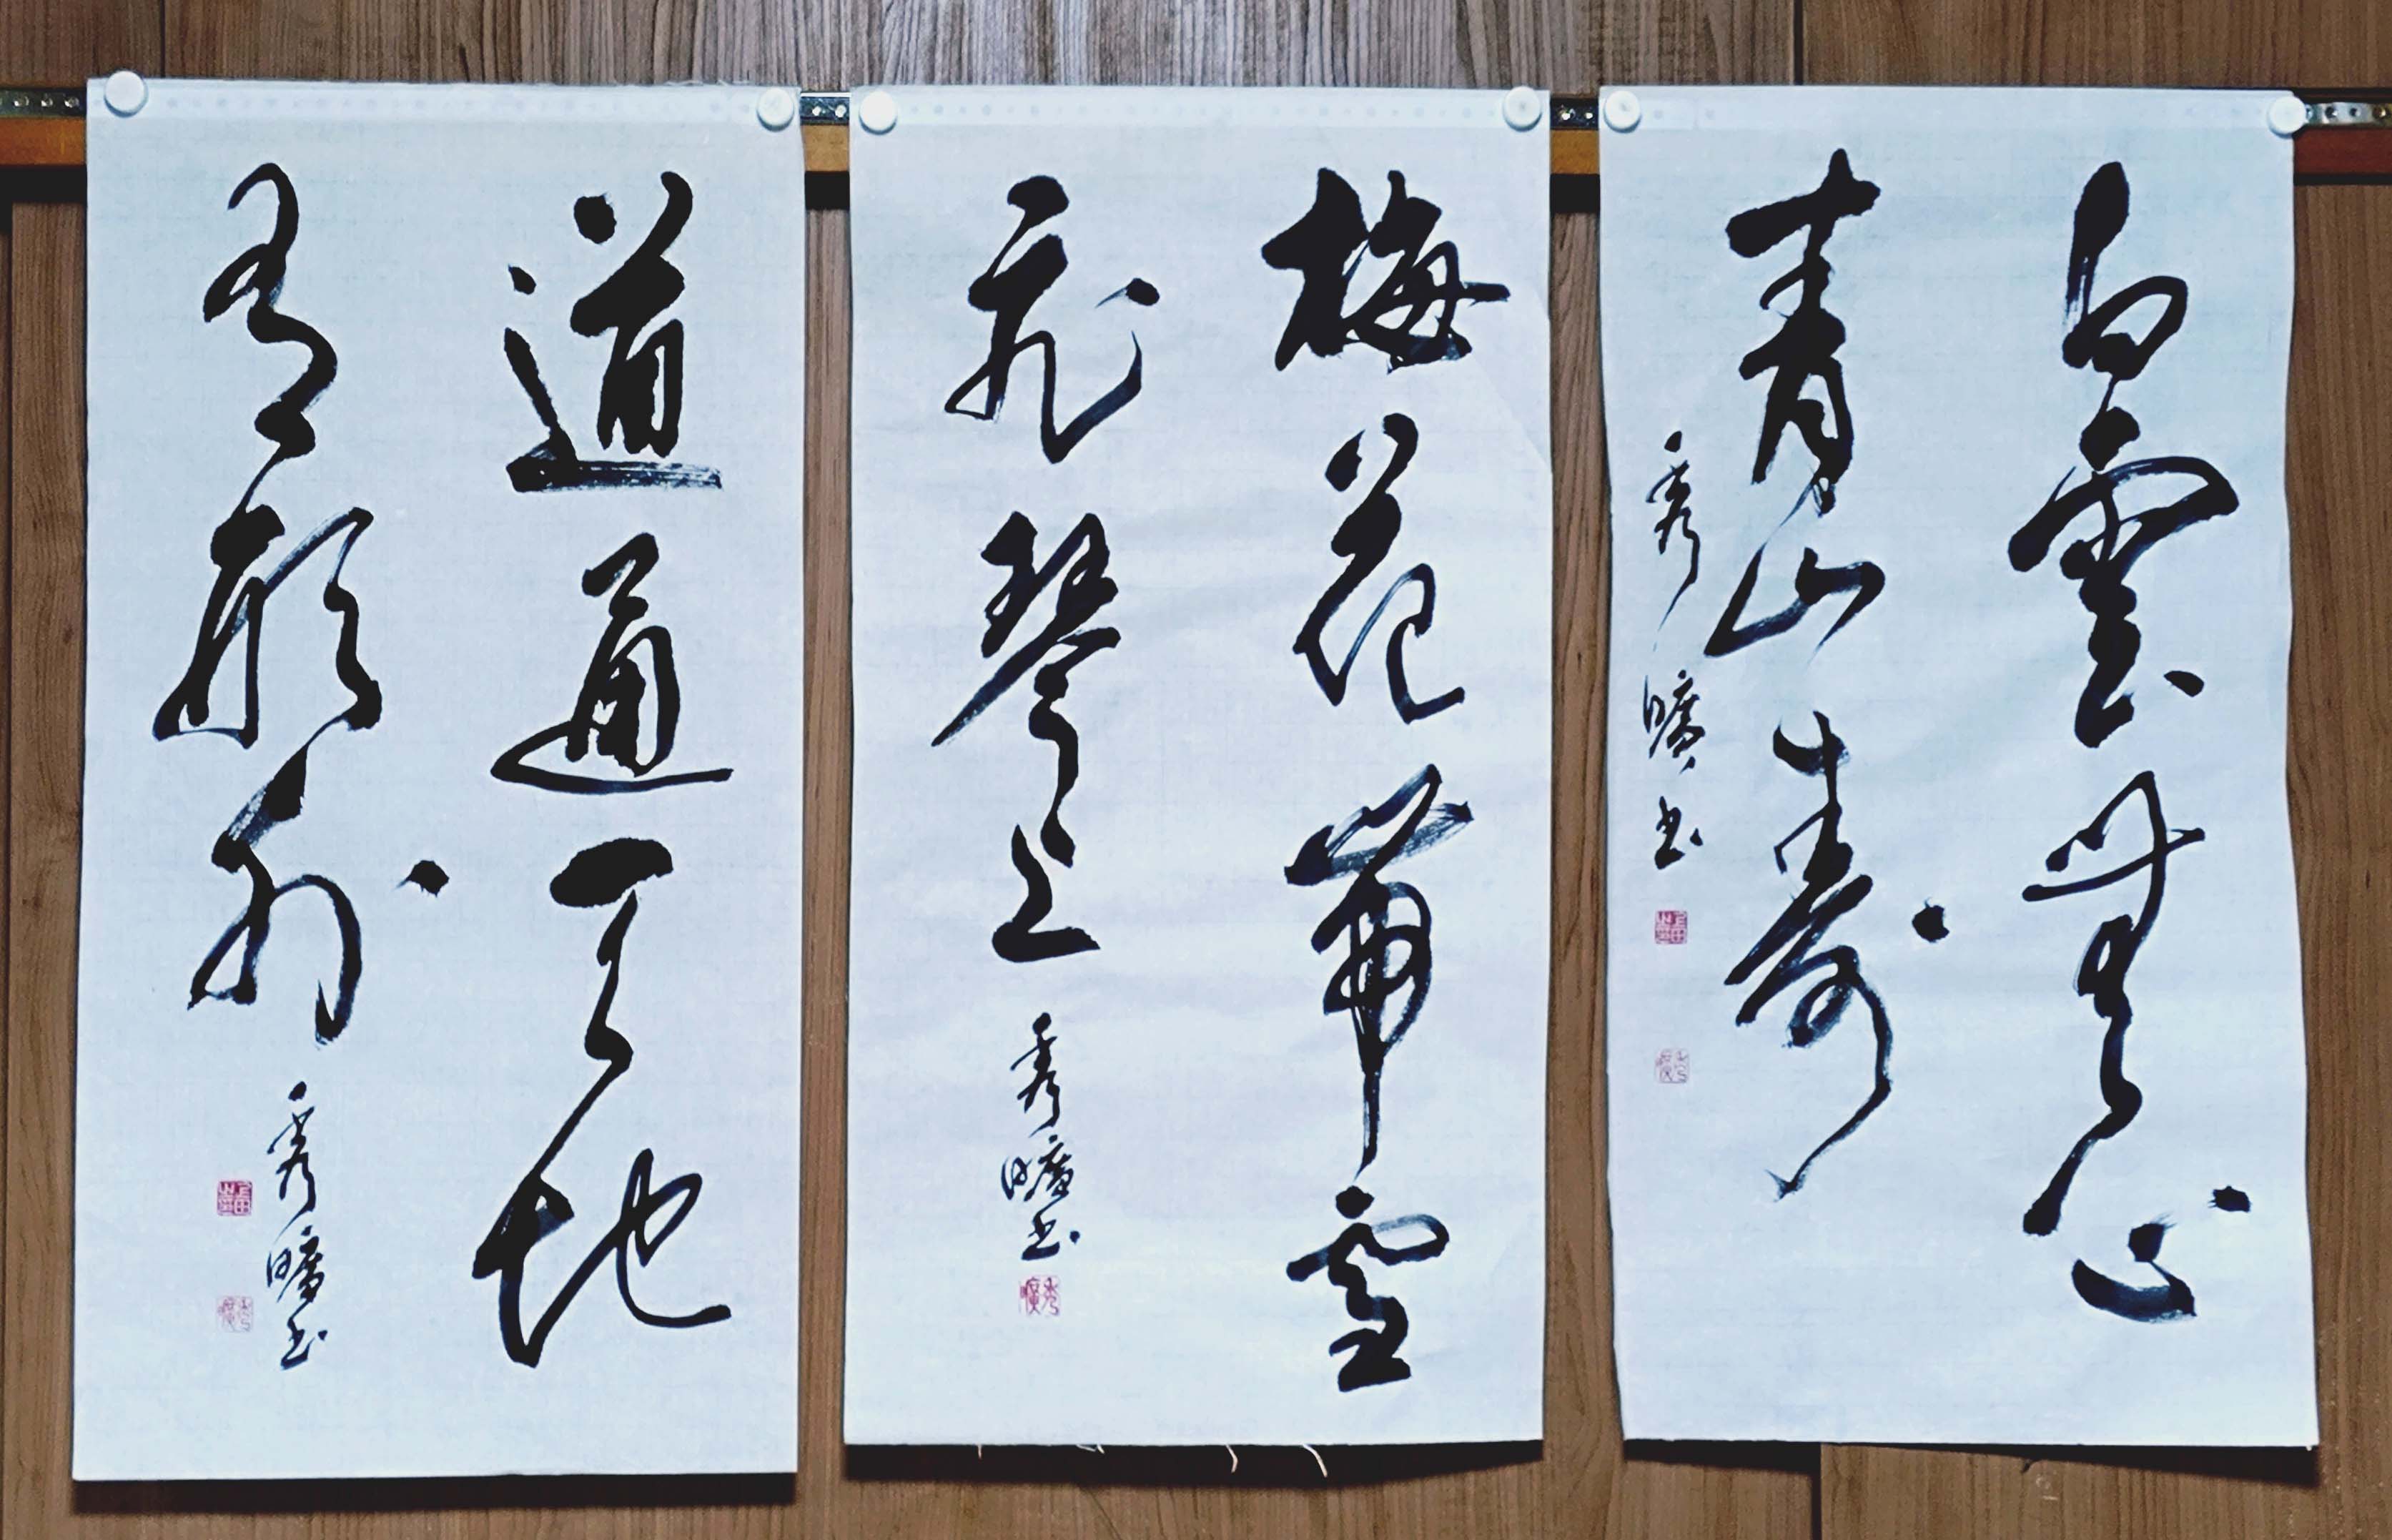 白雲無心
青山壽
秀曠書
梅花帶雪
飛琴上
秀曠書
道通天地
有形外
秀曠書